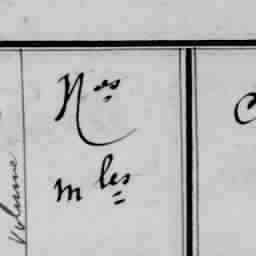 Nos
mles
Volume